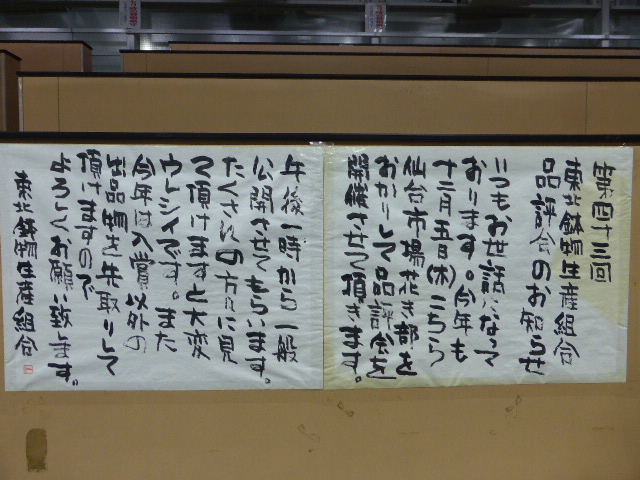 第四十三回
東北鉢物生産組合
品評会のお知らせ
いつもお世話になって
おります。今年も
十二月五日(木)こちら
仙台市場花き部を
おかりして品評会を
開催させて頂きます。
午後一時から一般
公開させてもらいます。
たくさんの方々に見
て頂けますと大変
ウレシイです。また
今年は入賞以外の
出品物を先取りして
頂けますので
よろしくお願い致します。
東北鉢物生産組合